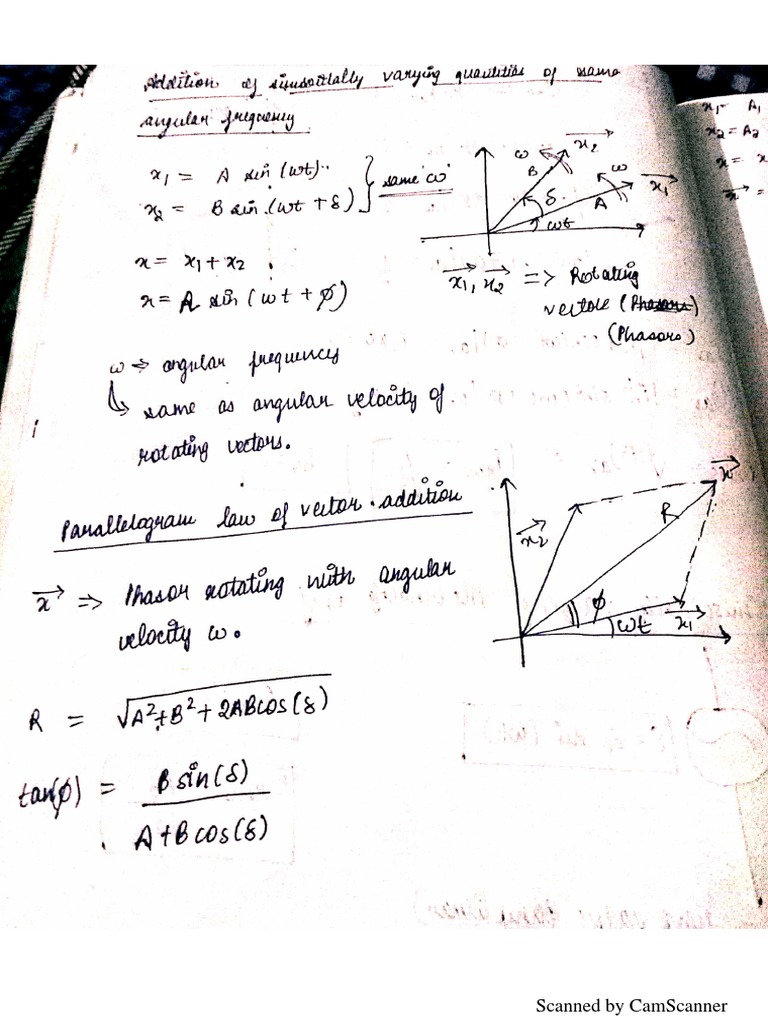 Addition of sinusoidally varying quantities of same
angular frequency.
x₁ = A sin (ωt).
x₂ = B sin (ωt + δ)
} same 'ω'
x = x₁ + x₂ .
x = R sin (ωt + φ)
ω
x₂
B
ω
δ
A
x₁
ωt
x₁, x₂ => Rotating
vectors (Phasors)
(Phasors)
ω => angular frequency
↳ same as angular velocity of
rotating vectors.
Parallelogram law of vector addition
x => Phasor rotating with angular
velocity ω.
x
R
x₂
φ
ωt
x₁
R = √A²+B²+2ABcos(δ)
tan(φ) = B sin(δ)
A+Bcos(δ)
x₁ = A₁
x₂ = A₂
x = x
x =
Scanned by CamScanner